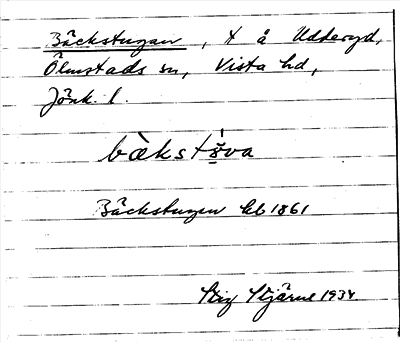 Bäckstugan, t å Uddaryd,
Ölmstads sn, Vista hd,
Jönk. l.
bæ̀kstö́va
Bäckstugen hb 1861
Stig Stjärne 1934